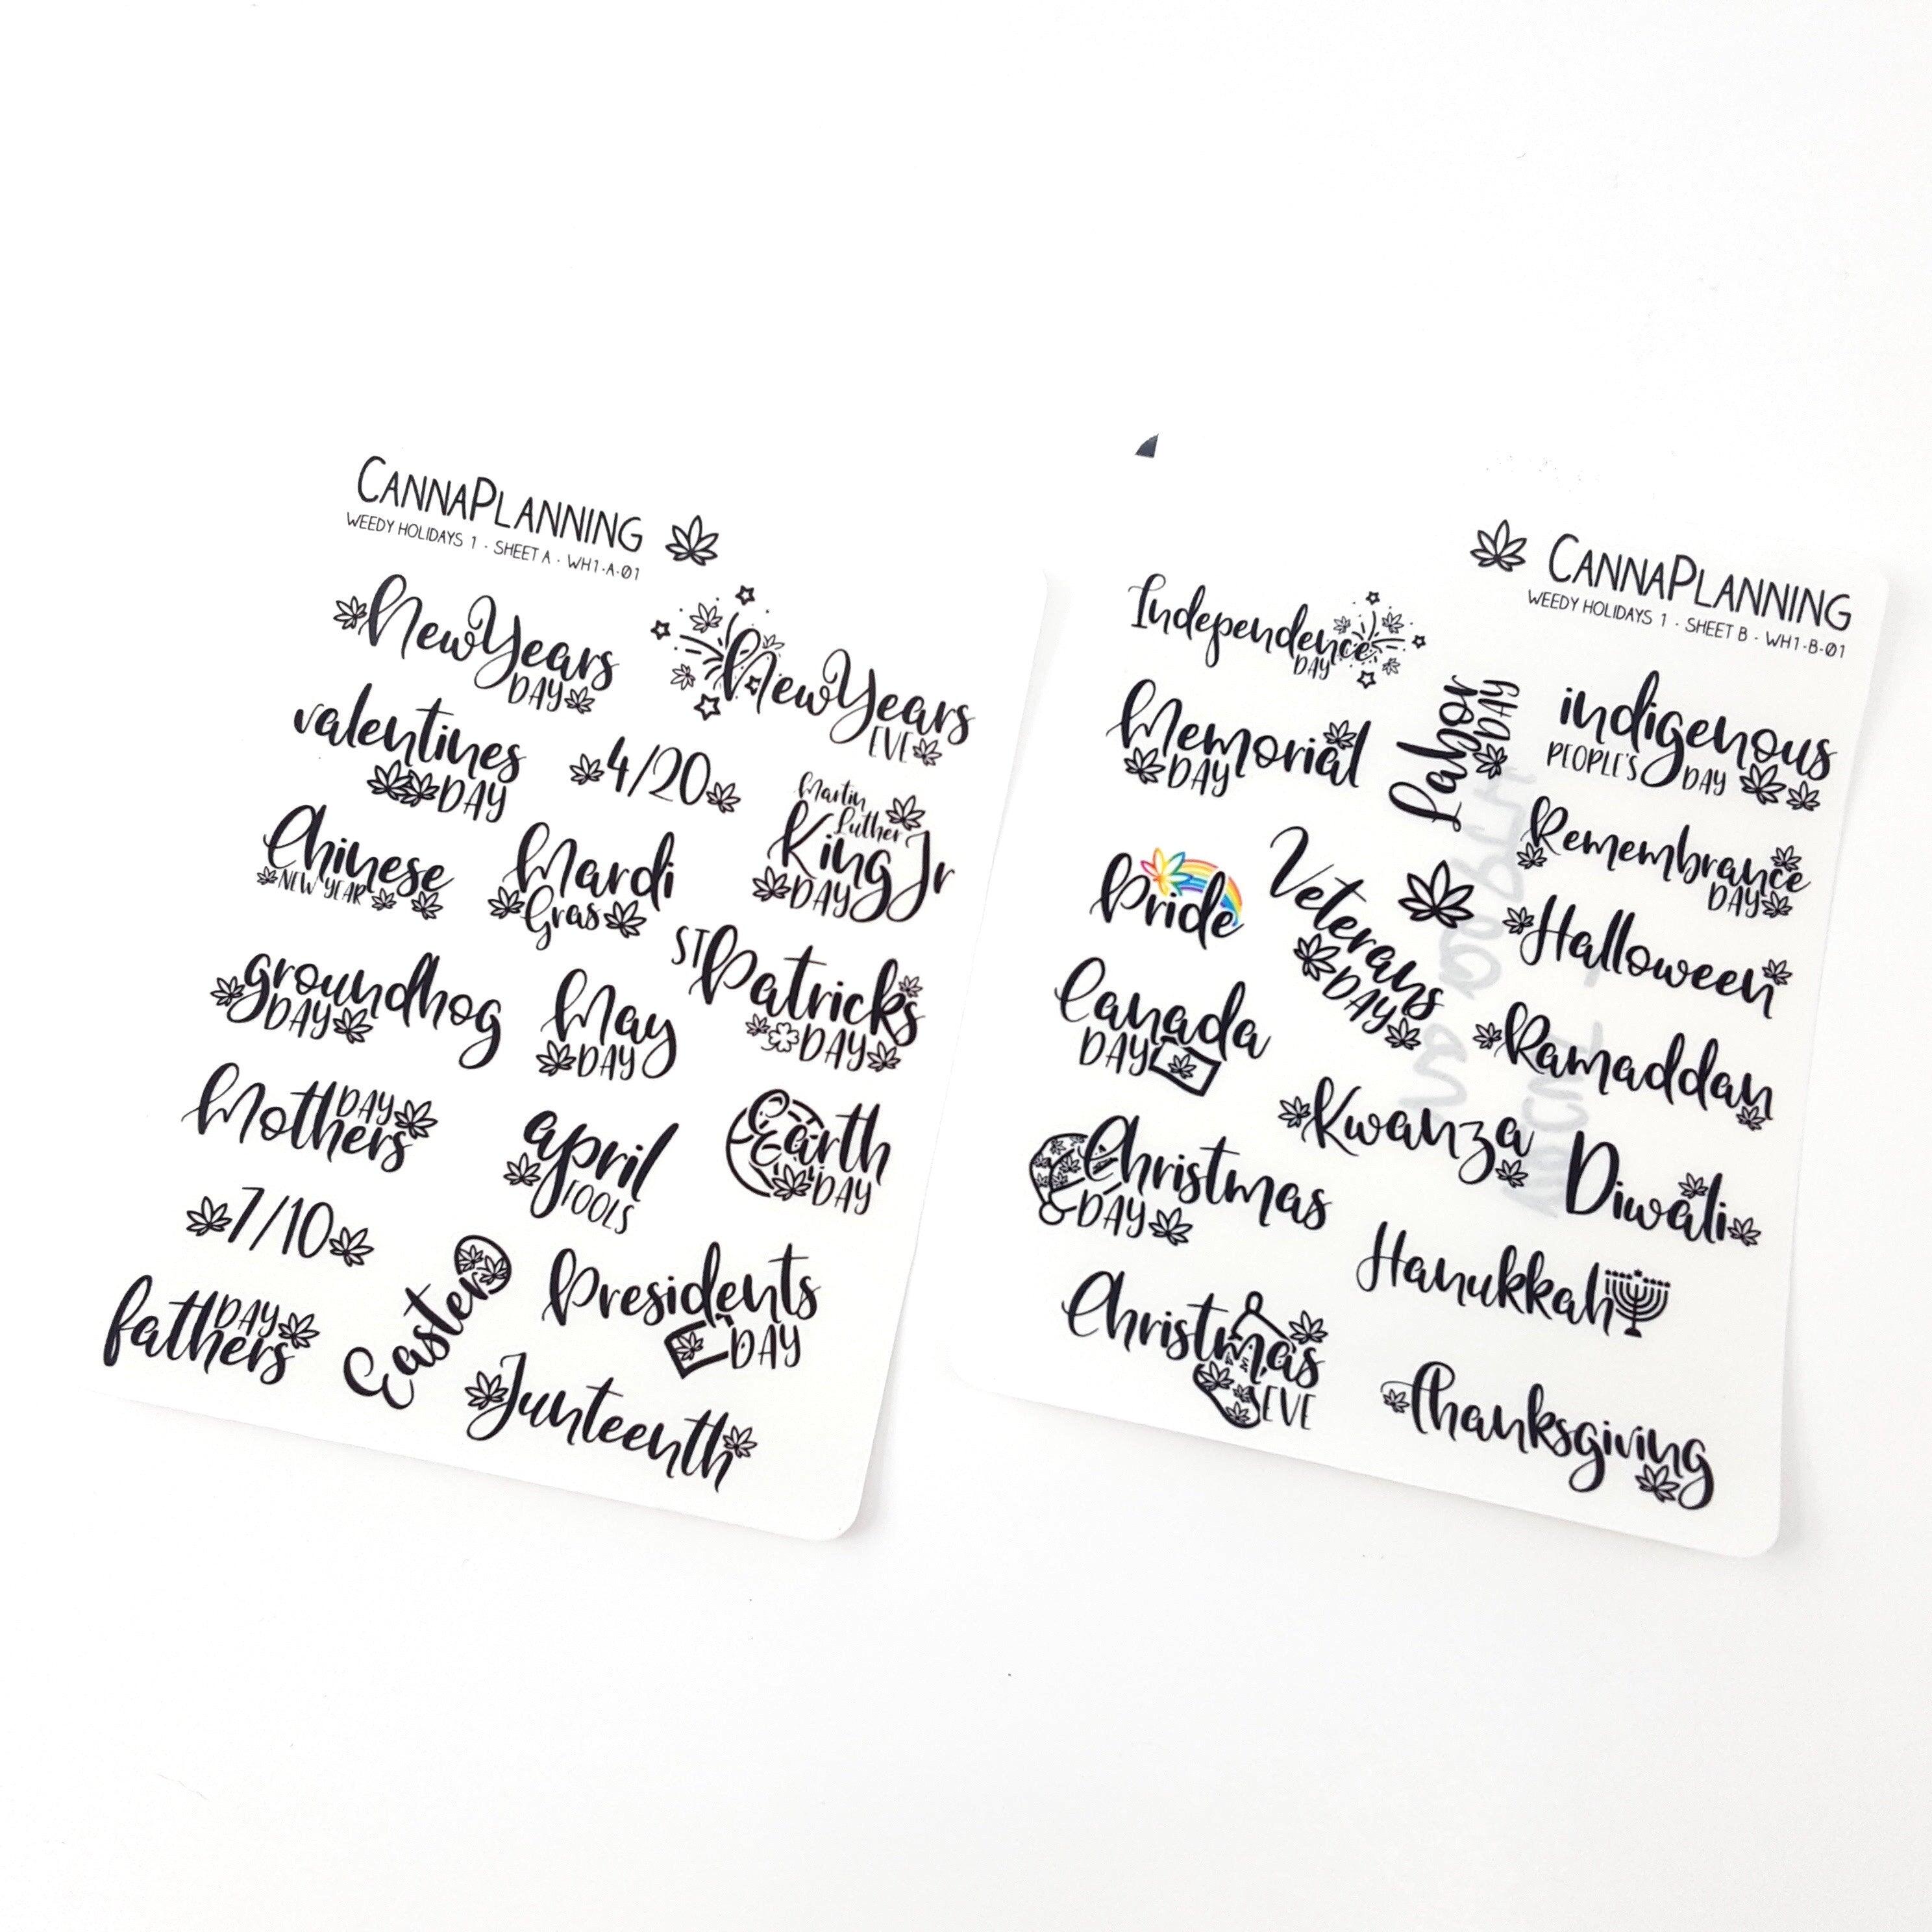 CANNAPLANNING
WEEDY HOLIDAYS 1 - SHEET A - WH1-A-01
NewYears
DAY
NewYears
EVE
valentines
DAY
4/20
Martin
Luther
King Jr
DAY
Chinese
NEW YEAR
Mardi
Gras
groundhog
DAY
May
DAY
ST Patricks
DAY
Mothers
DAY
april
FOOLS
Earth
DAY
7/10
fathers
DAY
Easter
Presidents
DAY
Junteenth
CANNAPLANNING
WEEDY HOLIDAYS 1 - SHEET B - WH1-B-01
Independence
DAY
Memorial
DAY
Labor
DAY
indigenous
PEOPLE'S DAY
Pride
Veterans
DAY
Remembrance
DAY
Halloween
Canada
DAY
Ramaddan
Kwanza
Christmas
DAY
Diwali
Hanukkah
Christmas
EVE
Thanksgiving